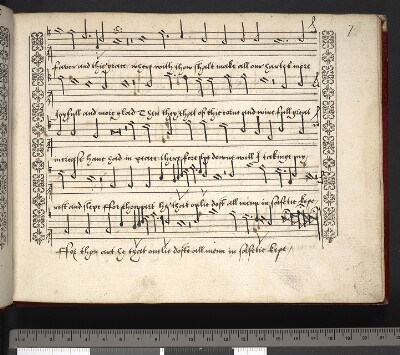 7
favor and thy peace wherewith thou shalt make all our hartes more
Joyfull and more glad Then they that of their corne and wine full great
increase have had in peace therefore lye downe will I taking my
rest and slepe ffor thou that onlie dost all menn in safetie kepe
ffor thou that onlie dost all menn in safetie kepe